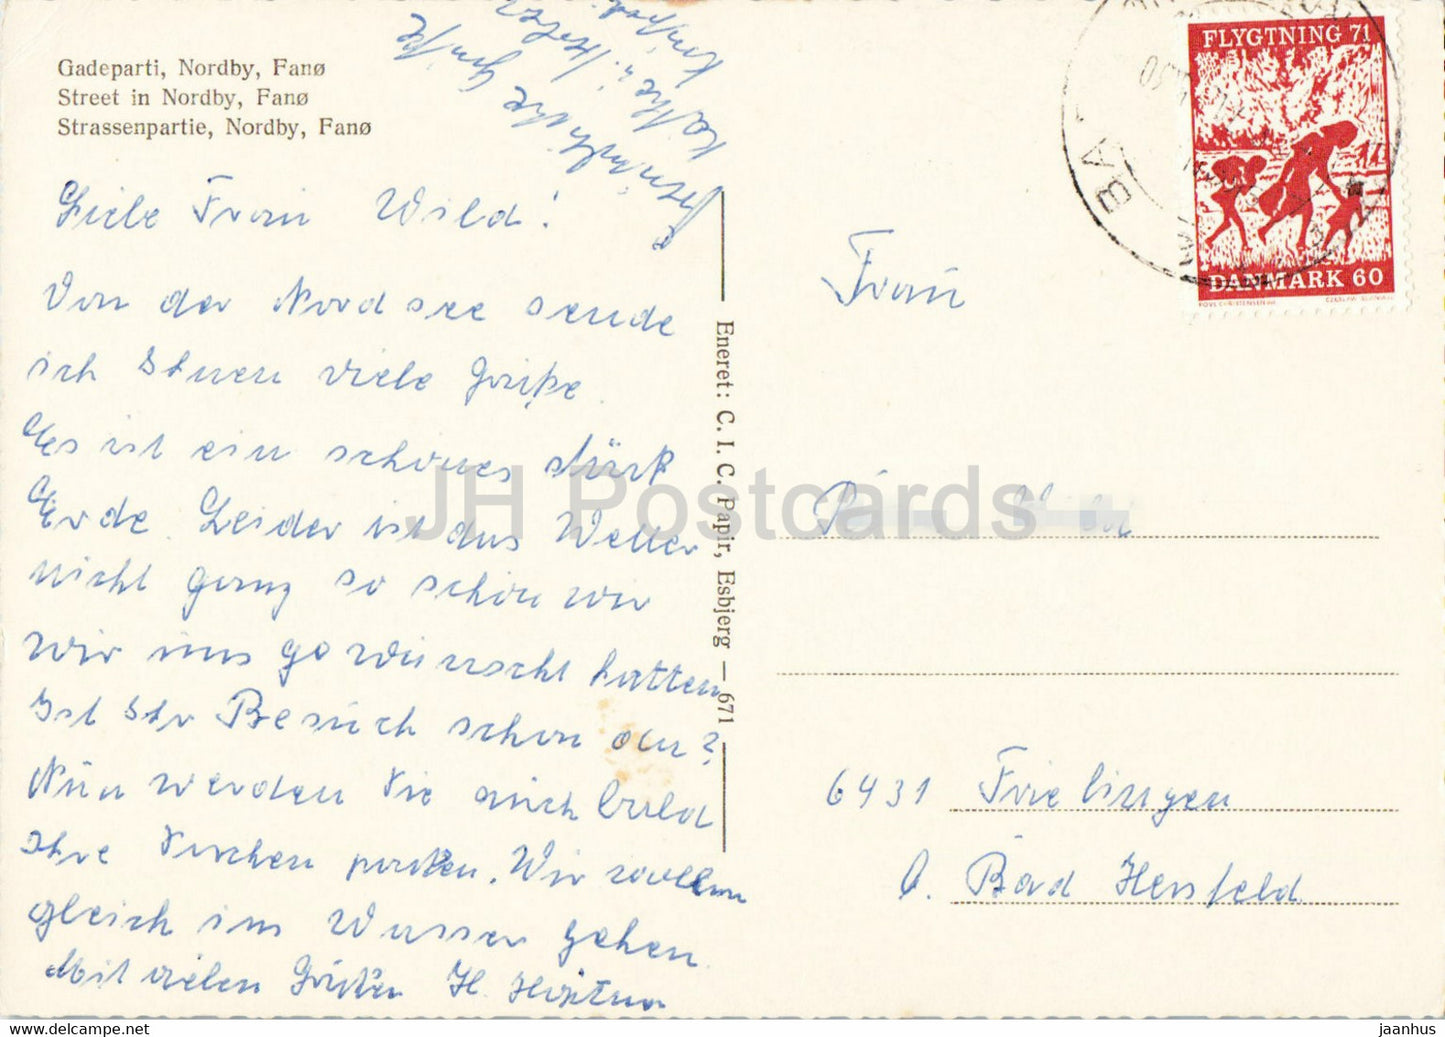 Gadeparti, Nordby, Fanø
Street in Nordby, Fanø
Strassenpartie, Nordby, Fanø
Liebe Frau Wild!
Von der Nordsee sende
ich Ihnen viele Grüße.
Es ist ein schönes stück
Erde. Leider ist das Wetter
nicht ganz so schön wir
wir uns gewünscht hatten
Ist Ihr Besuch schon da?
Nun werden Sie auch bald
Ihre Kirchen Wir wollen
gleich ins Wasser gehen.
Mit vielen Grüßen H.
Eneret: C. I. C. Papir, Esbjerg — 671
FLYGTNING 71
DANMARK 60
BA
Frau
6431 Frielingen
b. Bad Hersfeld
JH Postcards
jaanhus
www.delcampe.net